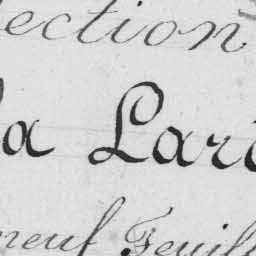 ection
la Lar
neuf Feuill